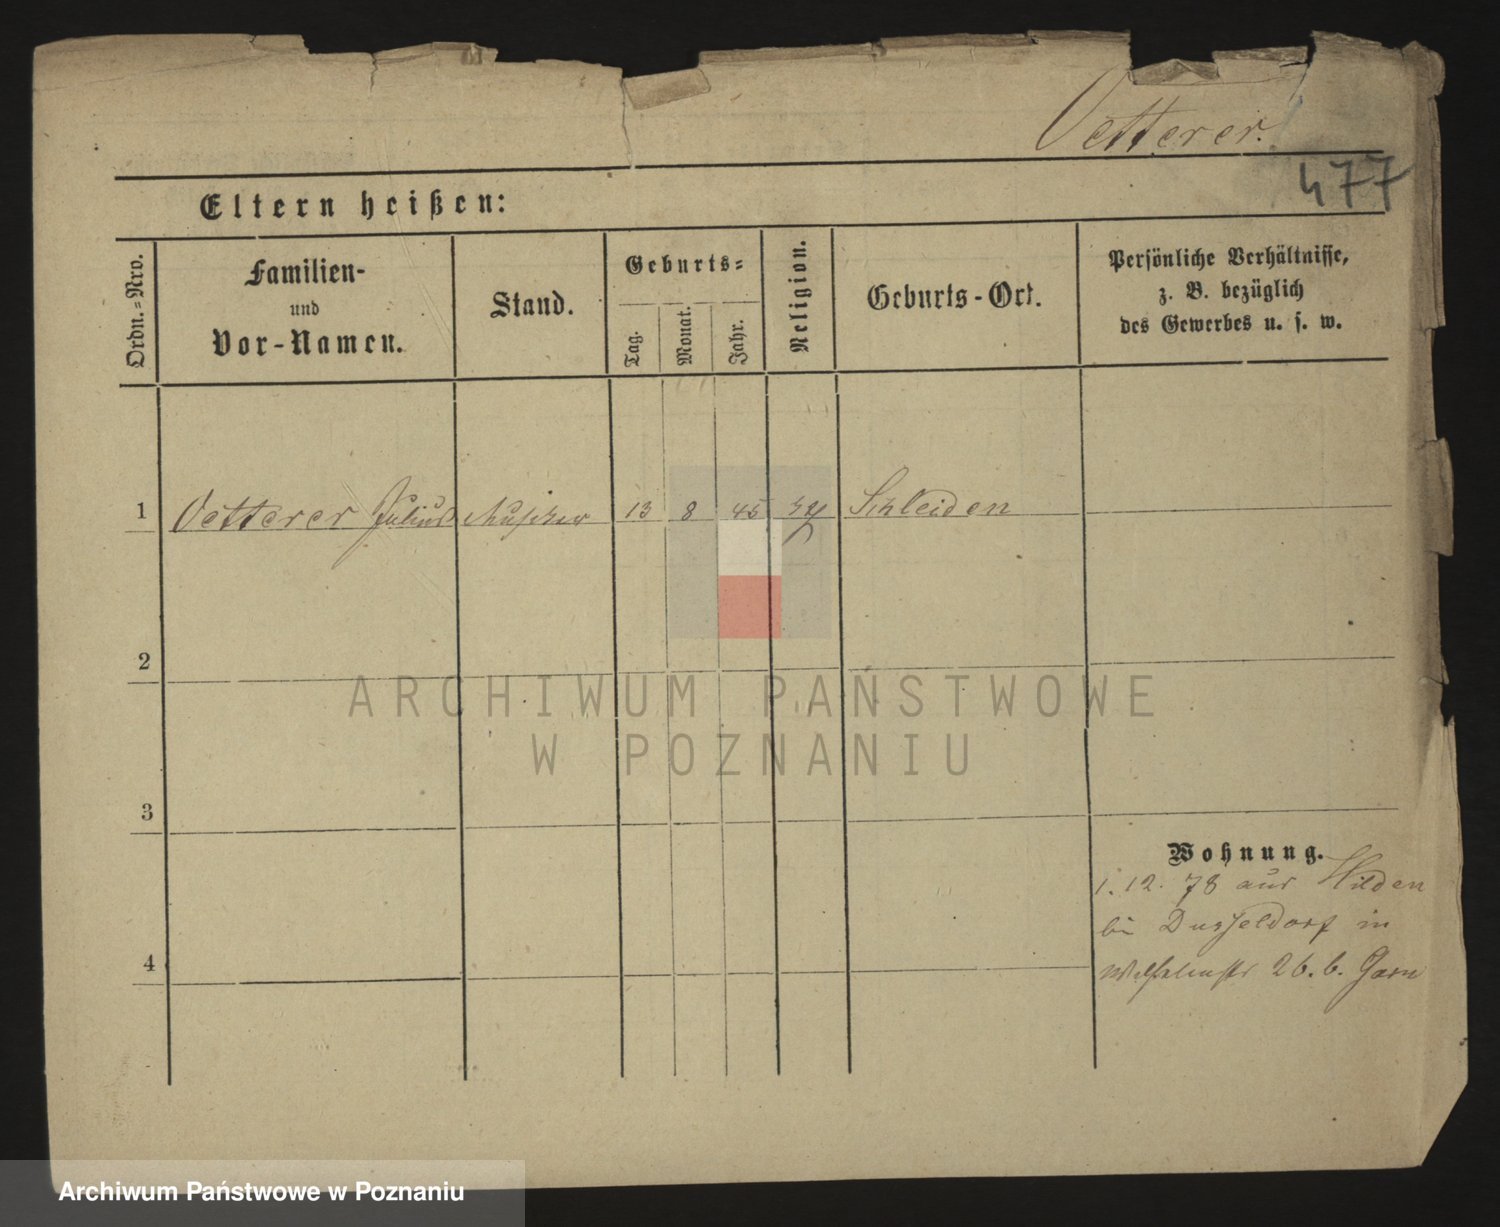 Oetterer.
477
Eltern heißen:
Ordn.-Nro.
Familien-
und
Vor-Namen.
Stand.
Geburts-
Tag.
Monat.
Jahr.
Religion.
Geburts-Ort.
Persönliche Verhältnisse,
z. B. bezüglich
des Gewerbes u. s. w.
1 Oetterer Julius Musiker 13 8 45 Schleiden
2
3
4
Wohnung.
1. 12. 78 aus Hilden
bei Dusseldorf in
26. b.
ARCHIWUM PAŃSTWOWE
W POZNANIU
Archiwum Państwowe w Poznaniu